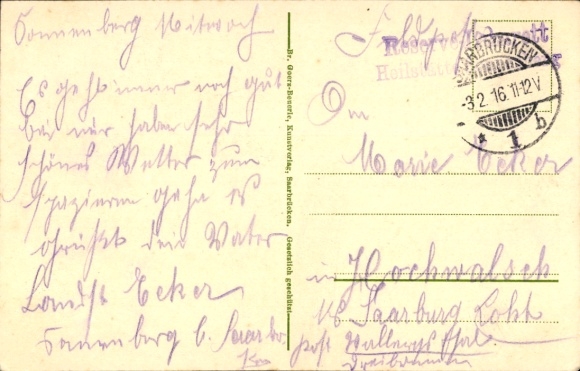 Sonnenberg Mitwoch
Es geht imer noch gut
bei mir haben sehr
schönes Wetter zum
spazieren gehn es
grüßt dein Vater
Landst Ecker
Sonnenberg b. Saarbr.
Dr. Goerz-Beuerle, Kunstverlag, Saarbrücken. Gesetzlich geschützt.
Feldpost
Reserve
SAARBRÜCKEN
-3.2.16.11-12V
* 1 b
An
Marie Ecker
in Hochwalsch
Saarburg Lothr
post Vallerysthal
Dreibrunnen